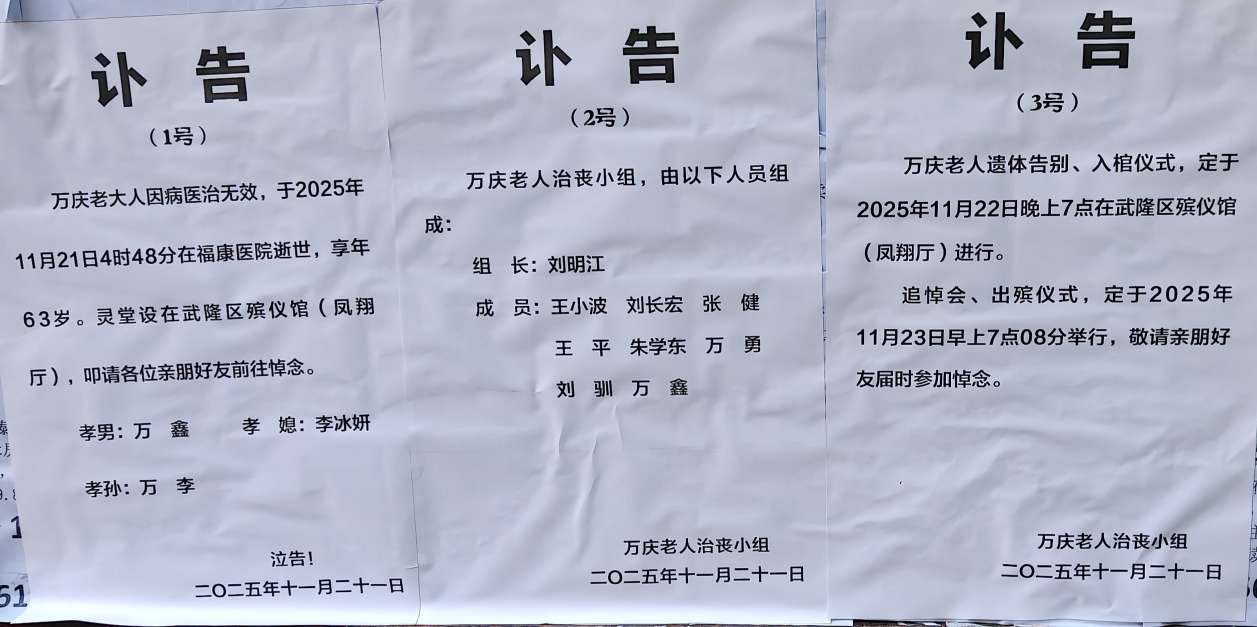 讣 告
（1号）
万庆老大人因病医治无效，于2025年
11月21日4时48分在福康医院逝世，享年
63岁。灵堂设在武隆区殡仪馆（凤翔
厅），叩请各位亲朋好友前往悼念。
孝男：万 鑫 孝 媳：李冰妍
孝孙：万 李
泣告！
二〇二五年十一月二十一日
讣 告
（2号）
万庆老人治丧小组，由以下人员组
成：
组 长：刘明江
成 员：王小波 刘长宏 张 健
王 平 朱学东 万 勇
刘 驯 万 鑫
万庆老人治丧小组
二〇二五年十一月二十一日
讣 告
（3号）
万庆老人遗体告别、入棺仪式，定于
2025年11月22日晚上7点在武隆区殡仪馆
（凤翔厅）进行。
追悼会、出殡仪式，定于2025年
11月23日早上7点08分举行，敬请亲朋好
友届时参加悼念。
万庆老人治丧小组
二〇二五年十一月二十一日